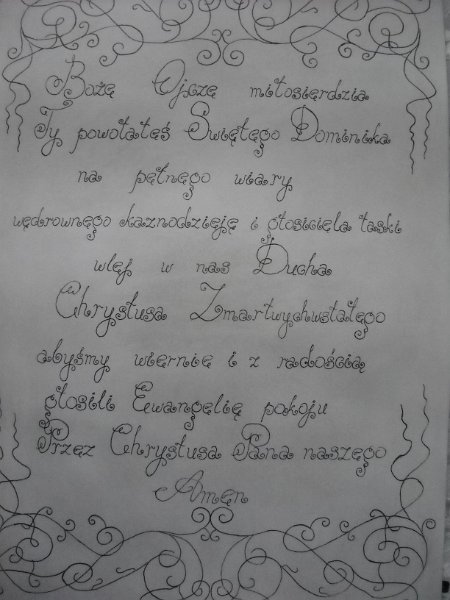 Boże Ojcze miłosierdzia
Ty powołałeś Świętego Dominika
na pełnego wiary
wędrownego kaznodzieję i głosiciela łaski
wlej w nas Ducha
Chrystusa Zmartwychwstałego
abyśmy wiernie i z radością
głosili Ewangelię pokoju
Przez Chrystusa Pana naszego
Amen